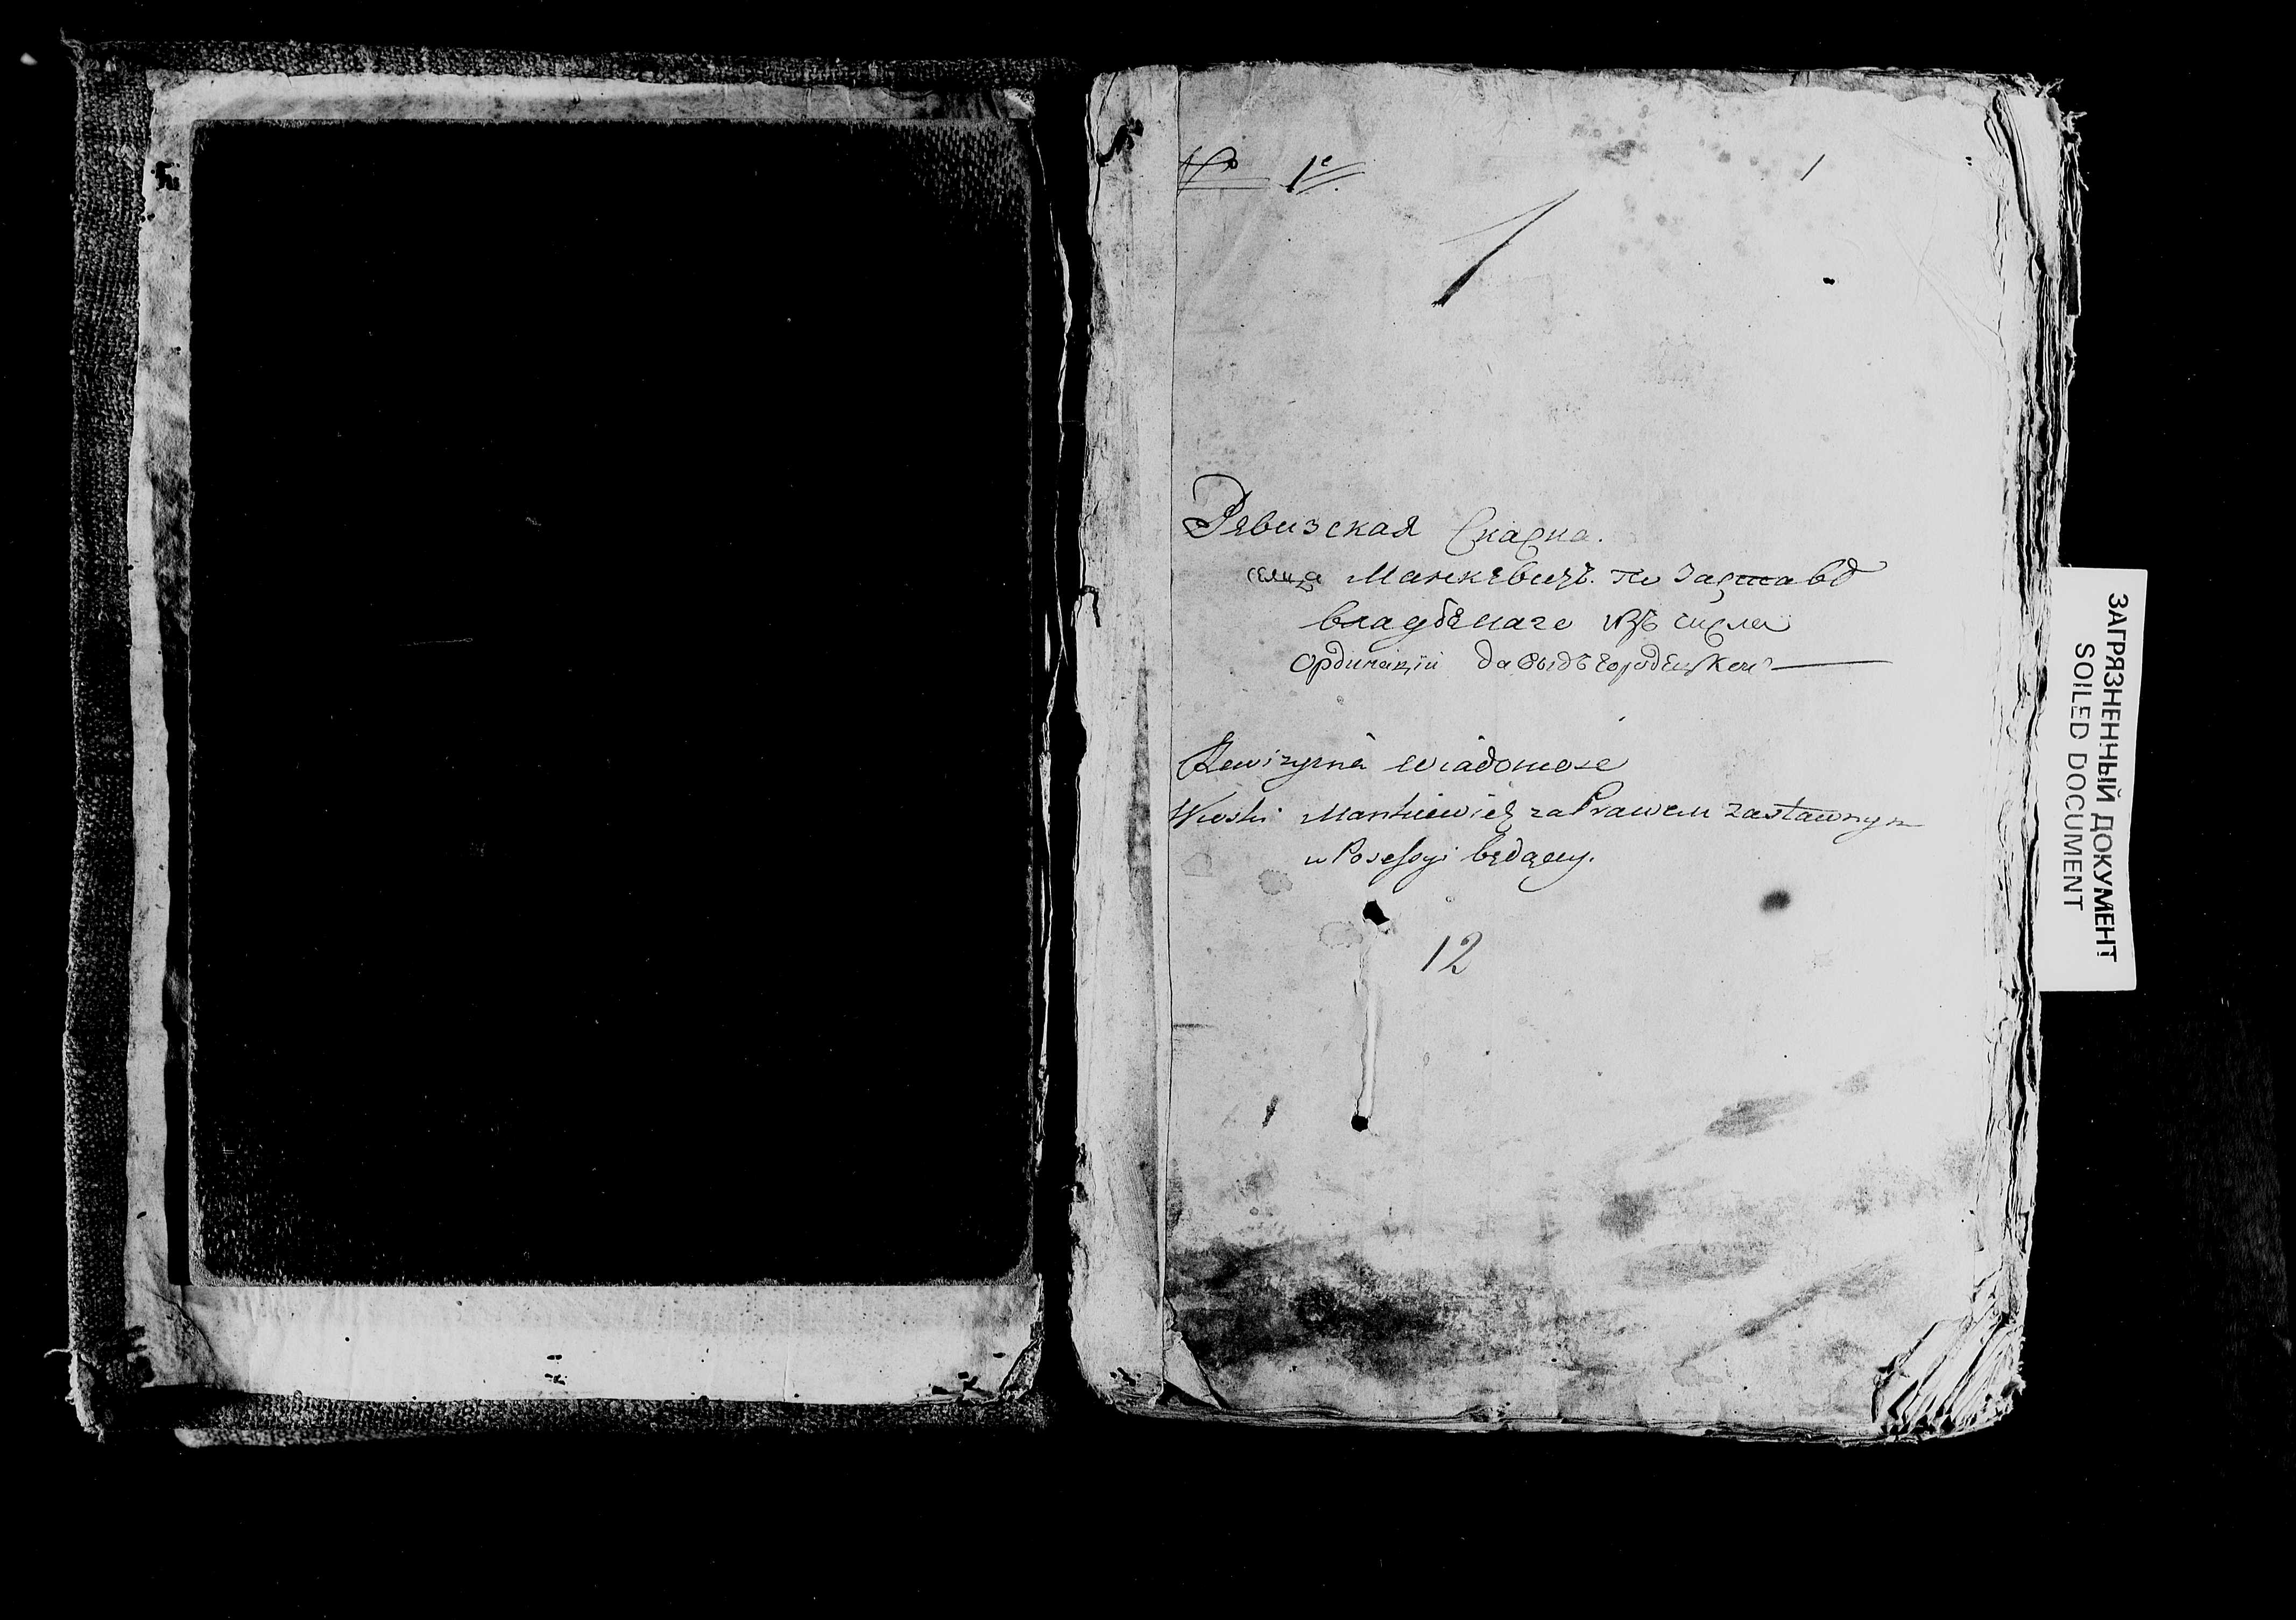 № 1е
1
1
Рѣвизская Скаска.
селца Манкѣвичъ. по Заставѣ
владѣнаго изъ числа
Ординацїи давыдъгородецкой
Rewizyina wiadomosc
Wioski Mankiewicz za Prawem zastawnym
w Posessyi będącey.
12
ЗАГРЯЗНЕННЫЙ ДОКУМЕНТ
SOILED DOCUMENT